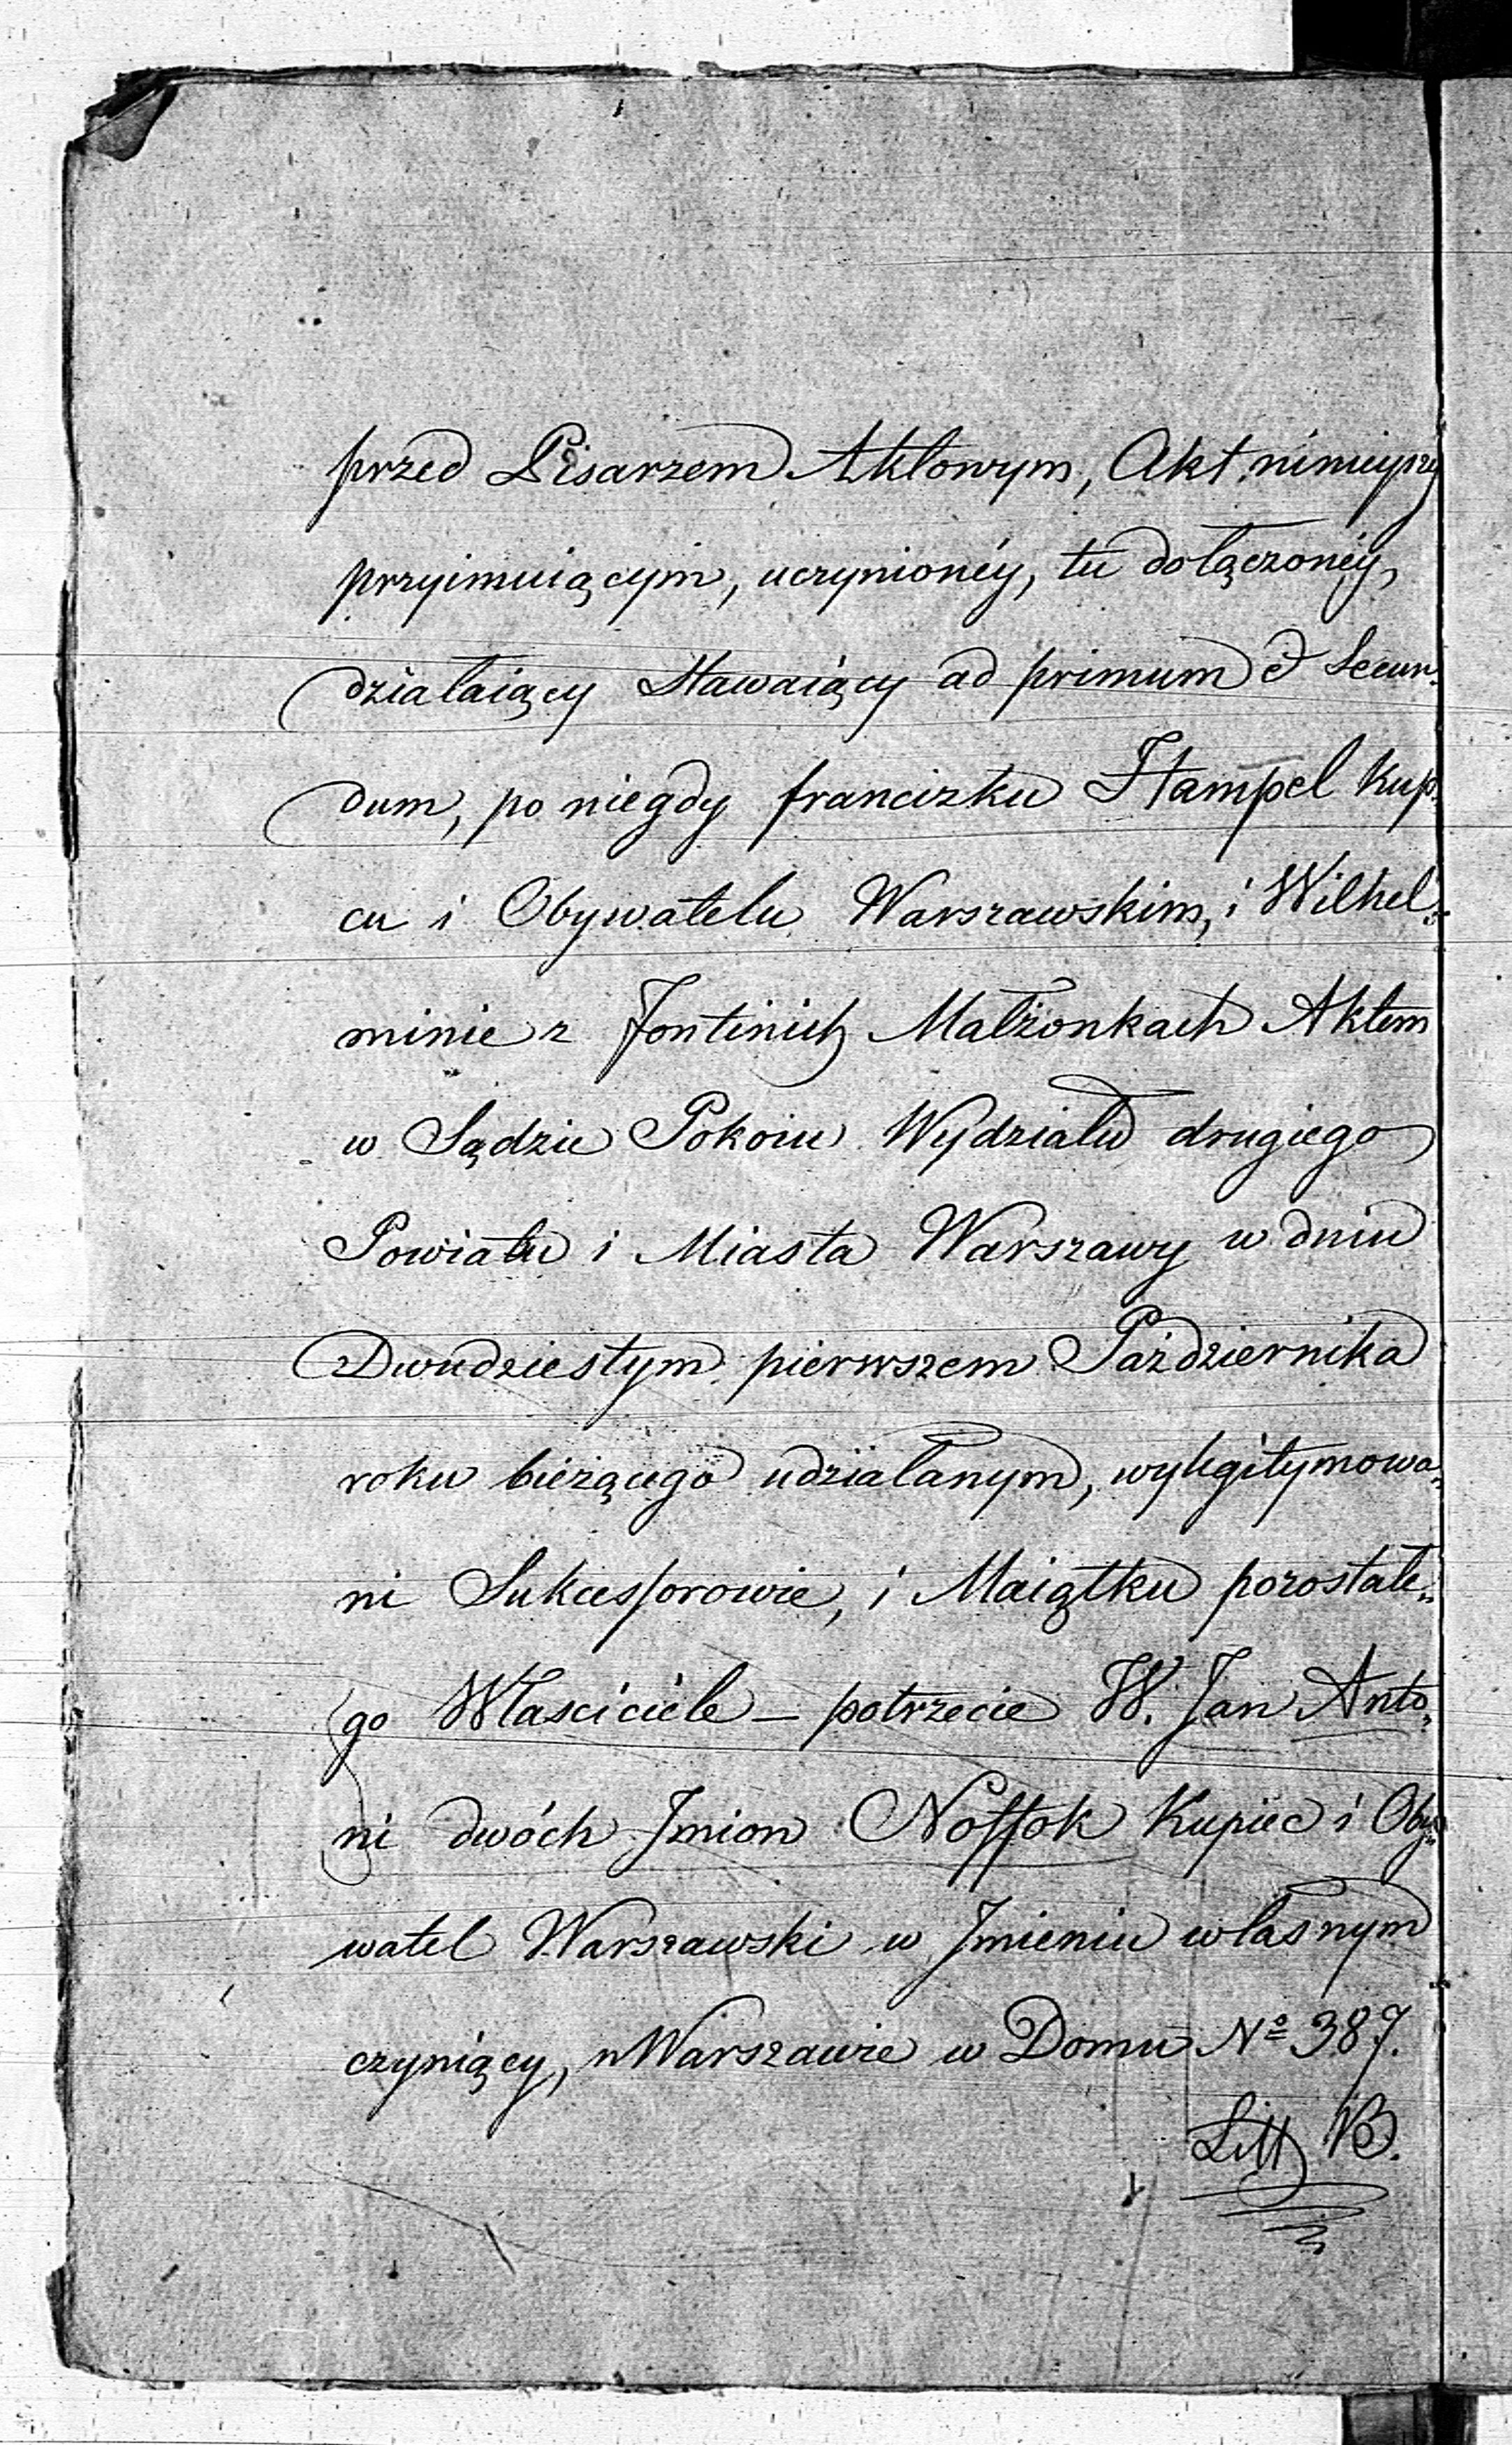 przed Pisarzem Aktowym, Akt ninieyszy
przyimuiącym, uczynionéy, tu dołączonéy,
działaiący Stawaiący ad primum et Secun-
dum, po niegdy Franciszku Stampel Kup-
cu i Obywatelu Warszawskim, i Wilhel-
minie z Małżonkach Aktem
w Sądzie Pokoiu Wydziału drugiego
Powiatu i Miasta Warszawy w dniu
Dwudziestym pierwszem Października
roku bieżącego udziałanym, wylegitymowa-
ni Sukcessorowie, i Maiątku pozostałe-
go Właściciele – potrzecie W. Jan Anto-
ni dwóch Imion Noffok Kupiec i Oby-
watel Warszawski w Imieniu własnym
czyniący, w Warszawie w Domu No 387.
Litt B.